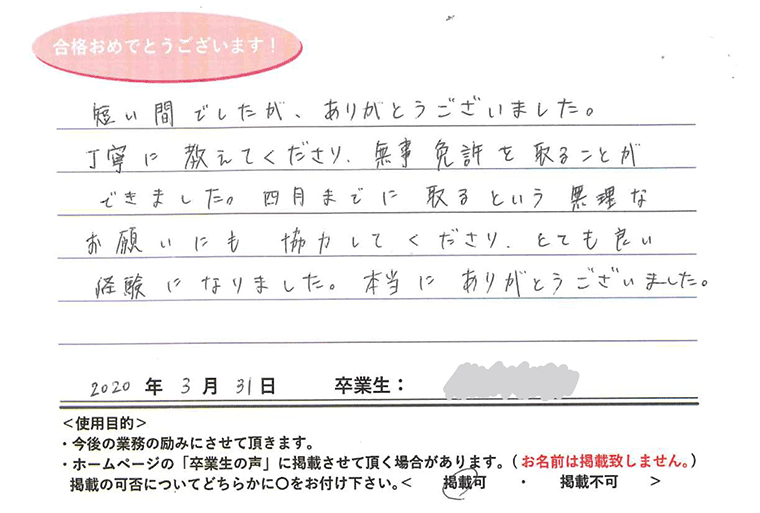 合格おめでとうございます！
短い間でしたが、ありがとうございました。
丁寧に教えてくださり、無事免許を取ることが
できました。四月までに取るという無理な
お願いにも協力してくださり、とても良い
経験になりました。本当にありがとうございました。
2020年3月31日 卒業生：
＜使用目的＞
・今後の業務の励みにさせて頂きます。
・ホームページの「卒業生の声」に掲載させて頂く場合があります。（お名前は掲載致しません。）
掲載の可否についてどちらかに〇をお付け下さい。＜ 掲載可 ・ 掲載不可 ＞